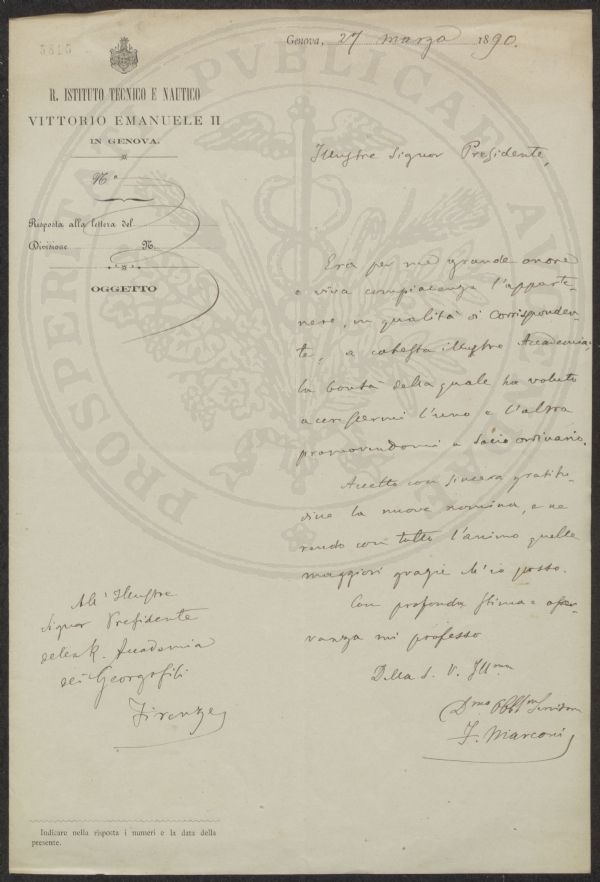 5815
Genova, 27 marzo 1890.
R. ISTITUTO TECNICO E NAUTICO
VITTORIO EMANUELE II
IN GENOVA.
N.º
Risposta alla lettera del
Divisione N.
OGGETTO
Illustre Signor Presidente,
Era per me grande onore
e viva compiacenza l'apparte-
nere, in qualità di Corrisponden-
te, a cotesta illustre Accademia;
la bontà della quale ha voluto
accrescermi l'uno e l'altra
promovendomi a Socio ordinario.
Accetto con sincera gratitu-
dine la nuova nomina, e ne
rendo con tutto l'animo quelle
maggiori grazie ch'io posso.
Con profonda stima e osser-
vanza mi professo
Della S. V. Ill.ma
D.mo Obbl.mo Servitore
F. Marconi
All'Illustre
Signor Presidente
della R. Accademia
dei Georgofili
Firenze
Indicare nella risposta i numeri e la data della
presente.
PROSPERITATI PUBLICAE AUGENDAE